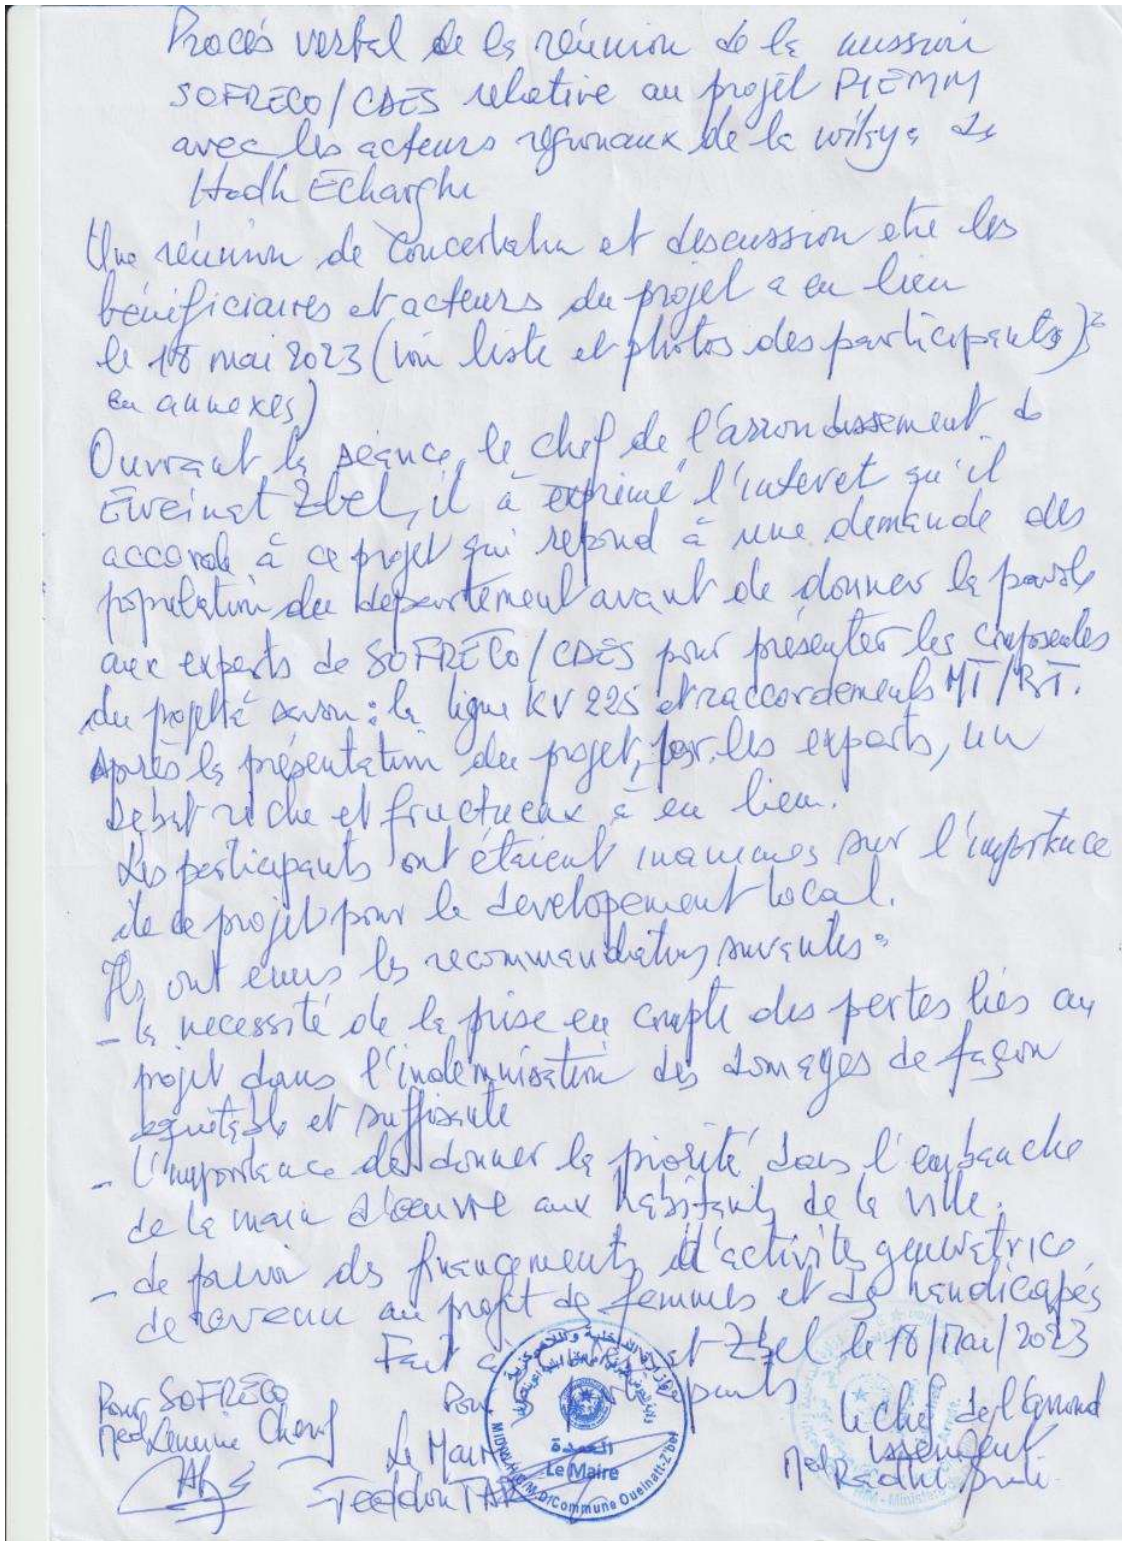 Procés verbal de la réunion de la mission
SOFRECO/CDES relative au projet PIEMM
avec les acteurs régionaux de la wilaya de
Hodh Echarghi
Une réunion de concertation et discussion etre les
bénificiaires et acteurs du projet a eu lieu
le 18 mai 2023 (voir liste et photos des participants)
en annexes)
Ouvrant la séance, le chef de l'arrondissement de
Eweinat Zbel, il à exprimé l'interet qu'il
accorde à ce projet qui repond à une demande des
population du departement avant de donner la parole
aux experts de SOFRECO/CDES pour présenter les composantes
du projet à savoir : la ligne KV 225 et raccordements MT/BT.
Aprés la présentation du projet, par les experts, un
debat riche et fructueux à eu lieu.
Les participants ont étaient unanimes sur l'importance
de ce projet pour le developement local.
Ils ont emis les recommandations suivantes :
- la necessité de la prise en compte des pertes liés au
projet dans l'indemnisation des domages de façon
equitable et suffisante
- L'importance de donner la priorité dans l'embauche
de la main d'oeuvre aux habitants de la ville.
- de prevoir des financements d'activités generatrice
de revenu au profit de femmes et de handicapés
Fait à Zbel le 18/Mai/2023
Pour SOFRECO
Pour
Le chef de l'arrond
issement
Med Lemine Cherif
Le Maire
Med Radhi
العمدة
Le Maire
Commune Oueinatt-Z'bel